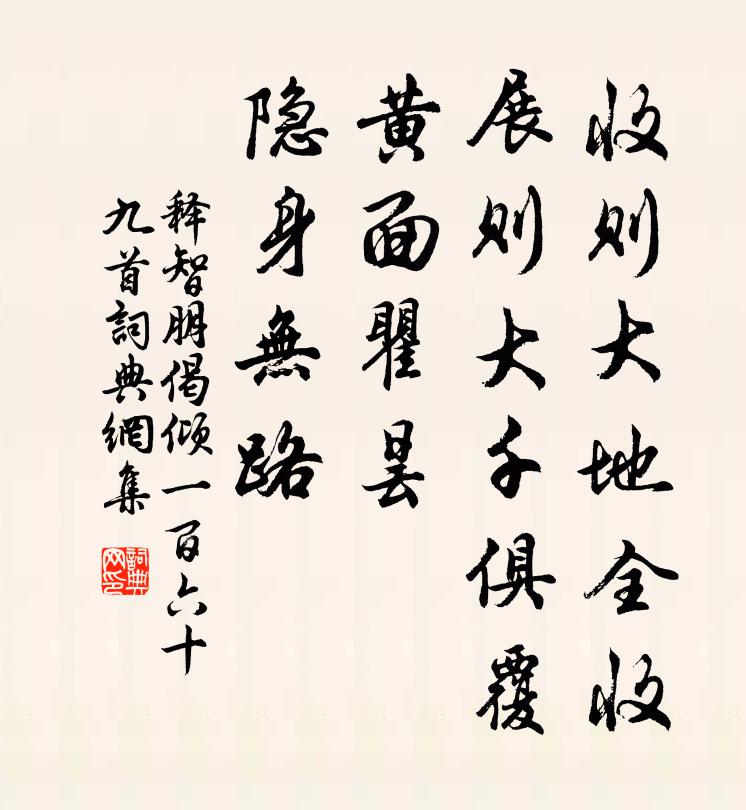 收则大地全收
展则大千俱覆
黄面瞿昙
隐身無路
释智朋偈倾一百六十
九首詞典網集
詞典
网印